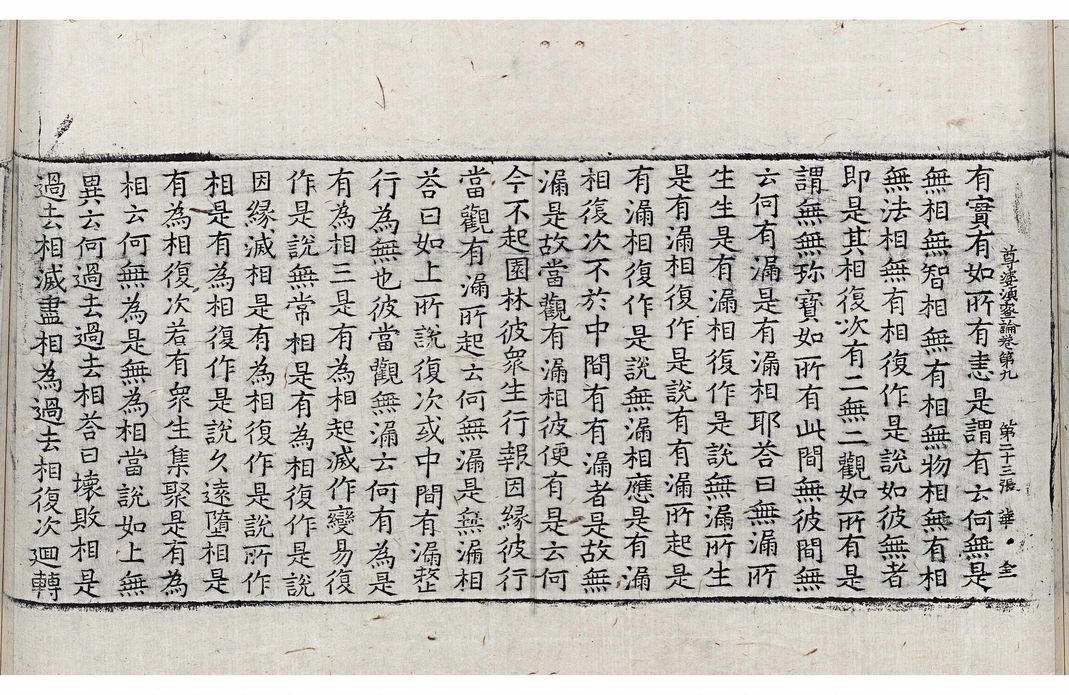 有實有如所有恚是謂有云何無是
尊婆須蜜論卷第九 第二十三張 華
無相無智相無有相無物相無有相
無法相無有相復作是說如彼無者
即是其相復次有二無二觀如所有是
謂無無珎寶如所有此間無彼間無
云何有漏是有漏相耶荅曰無漏所
生生是有漏相復作是說無漏所生
是有漏相復作是說有有漏所起是
有漏相復作是說無漏相應是有漏
相復次不於中間有有漏者是故無
漏是故當觀有漏相彼便有是云何
今不起園林彼衆生行報因緣彼行
當觀有漏所起云何無漏是無漏相
荅曰如上所說復次或中間有漏整
行為無也彼當觀無漏云何有為是
有為相三是有為相起滅作變易復
作是說無常相是有為相復作是說
因緣滅相是有為相復作是說所作
相是有為相復作是說久遠墮相是
有為相復次若有衆生集聚是有為
相云何無為是無為相當說如上無
異云何過去過去相荅曰壞敗相是
過去相滅盡相為過去相復次迴轉